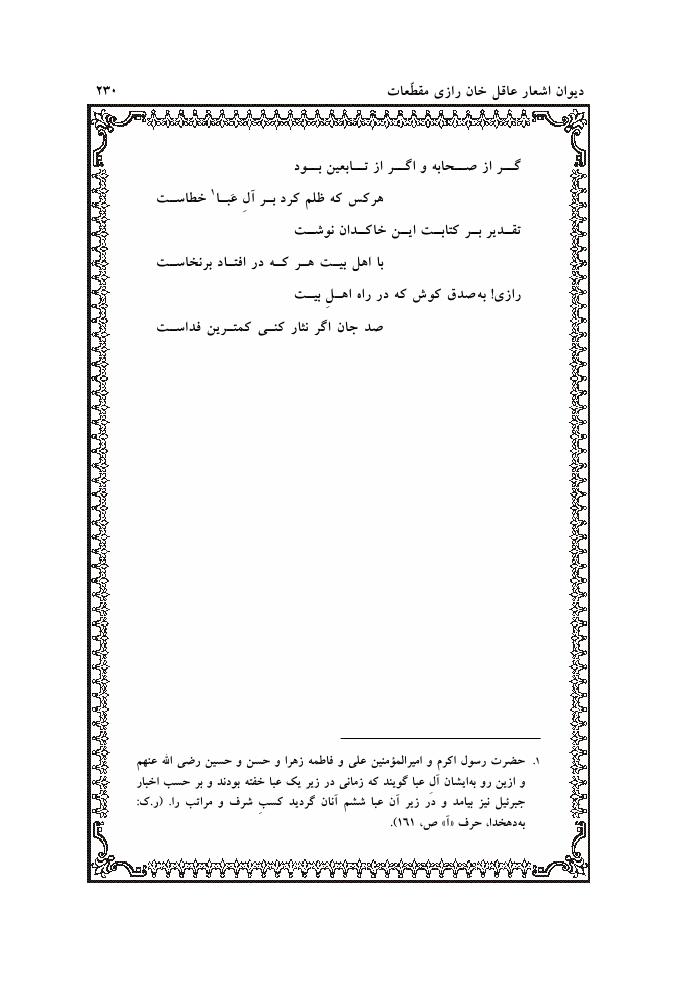 دیوان اشعار عاقل خان رازی مقطّعات ۲۳۰
گر از صحابه و اگر از تابعین بود
هرکس که ظلم کرد بر آلِ عَبا۱ خطاست
تقدیر بر کتابت این خاکدان نوشت
با اهل بیت هر که در افتاد برنخاست
رازی! به‌صدق کوش که در راه اهلِ بیت
صد جان اگر نثار کنی کمترین فداست
۱. حضرت رسول اکرم و امیرالمؤمنین علی و فاطمه زهرا و حسن و حسین رضی الله عنهم
و ازین رو به‌ایشان آل عبا گویند که زمانی در زیر یک عبا خفته بودند و بر حسب اخبار
جبرئیل نیز بیامد و در زیر آن عبا ششم آنان گردید کسبِ شرف و مراتب را. (ر.ک:
به‌دهخدا، حرف «آ» ص، ۱۶۱).